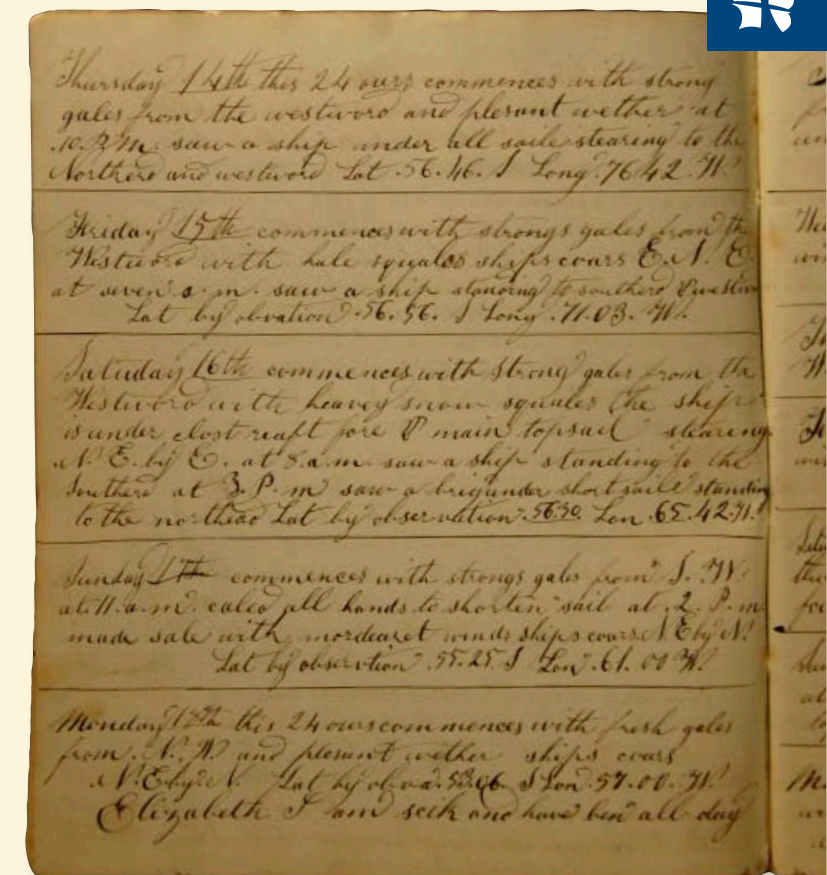 Thursday 14th this 24 ours commences with strong
gales from the westword and plesant wether at
10. P. M. saw a ship under all saile stearing to the
Northerd and westword Lat. 56.46. S Long. 76 42. W.
Friday 15th commences with strongs gales from the
Westword with hale squales ships cours E. N. E.
at seven a. m. saw a ship standing to southerd & westw
Lat by obvation. 56. 56. S Long. 71.03. W.
Satuday 16th commences with strong gales from the
Westword with heavey snow squales the ship
is under clost reaft fore & main topsail stearing
N. E. by E. at 8. a. m. saw a ship standing to the
Southerd at 3. P. m saw a brig under short saile standing
to the northead Lat by observation. 56.30. Lon. 65. 42. W.
Sunday 17th commences with strongs gales from S. W.
at. 11. a. m. caled all hands to shorten sail at. 2. P. m
made sale with mordearet winds ships cours N E by N.
Lat by observtion. 55. 25. S Lon. 61. 00 W.
Monday 18th this 24 ours commences with fresh gales
from. N. W. and plesant wether ships cours
N. E. by. N. Lat by obva. S Lon. 57. 00. W.
Elizabeth I am seik and have ben all day